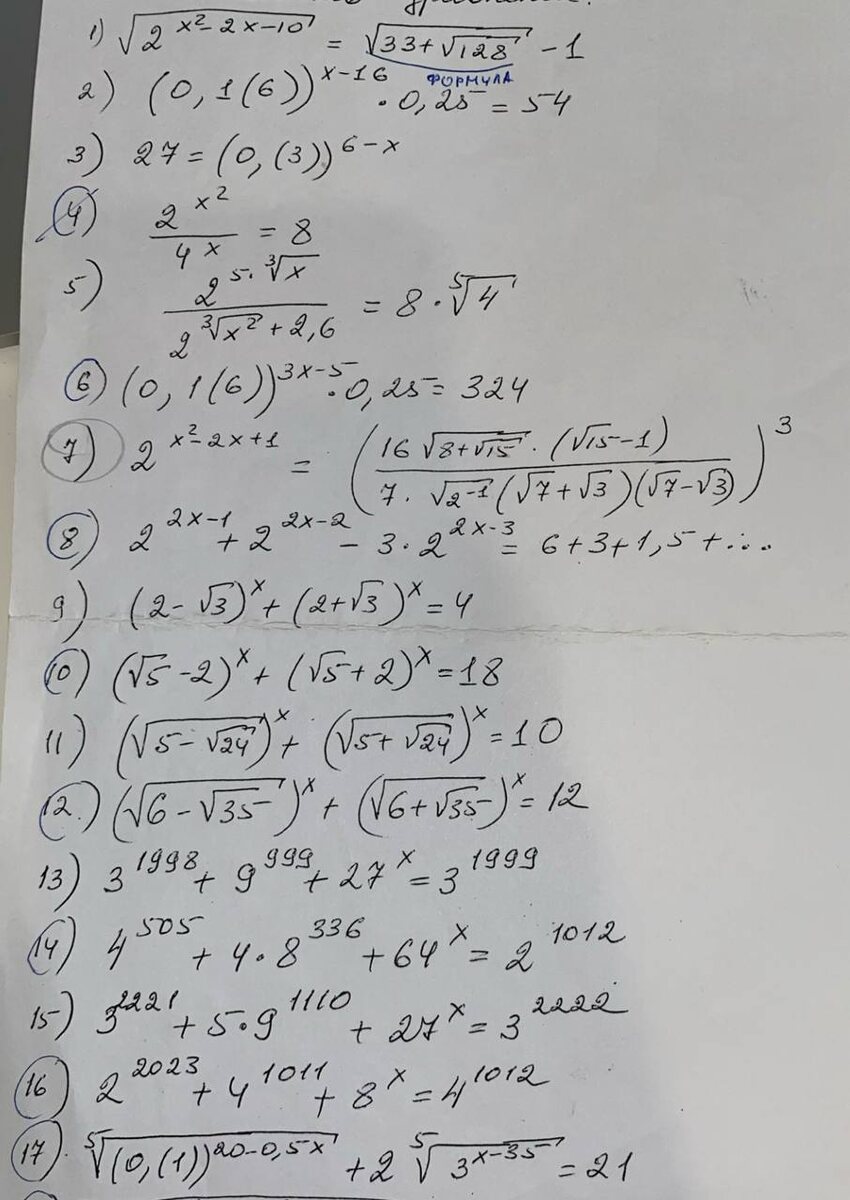 1) √(2^(x²-2x-10)) = √(33+√128) - 1
ФОРМУЛА
2) (0,1(6))^(x-16) · 0,25 = 54
3) 27 = (0,(3))^(6-x)
4) 2^(x²) / 4^x = 8
5) 2^(5·∛x) / 2^(∛(x²)+2,6) = 8 · ⁵√4
6) (0,1(6))^(3x-5) · 0,25 = 324
7) 2^(x²-2x+1) = (16√(8+√15) · (√15-1) / 7·√(2^(-1))(√7+√3)(√7-√3))³
8) 2^(2x-1) + 2^(2x-2) - 3·2^(2x-3) = 6+3+1,5+...
9) (2-√3)^x + (2+√3)^x = 4
10) (√5-2)^x + (√5+2)^x = 18
11) (√(5-√24))^x + (√(5+√24))^x = 10
12.) (√(6-√35))^x + (√(6+√35))^x = 12
13) 3^1998 + 9^999 + 27^x = 3^1999
14) 4^505 + 4·8^336 + 64^x = 2^1012
15) 3^2221 + 5·9^1110 + 27^x = 3^2222
16) 2^2023 + 4^1011 + 8^x = 4^1012
17) ⁵√((0,(1))^(20-0,5x)) + 2 ⁵√(3^(x-35)) = 21